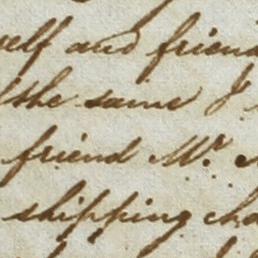 self and friend
the same I
friend Mr.
shipping cha